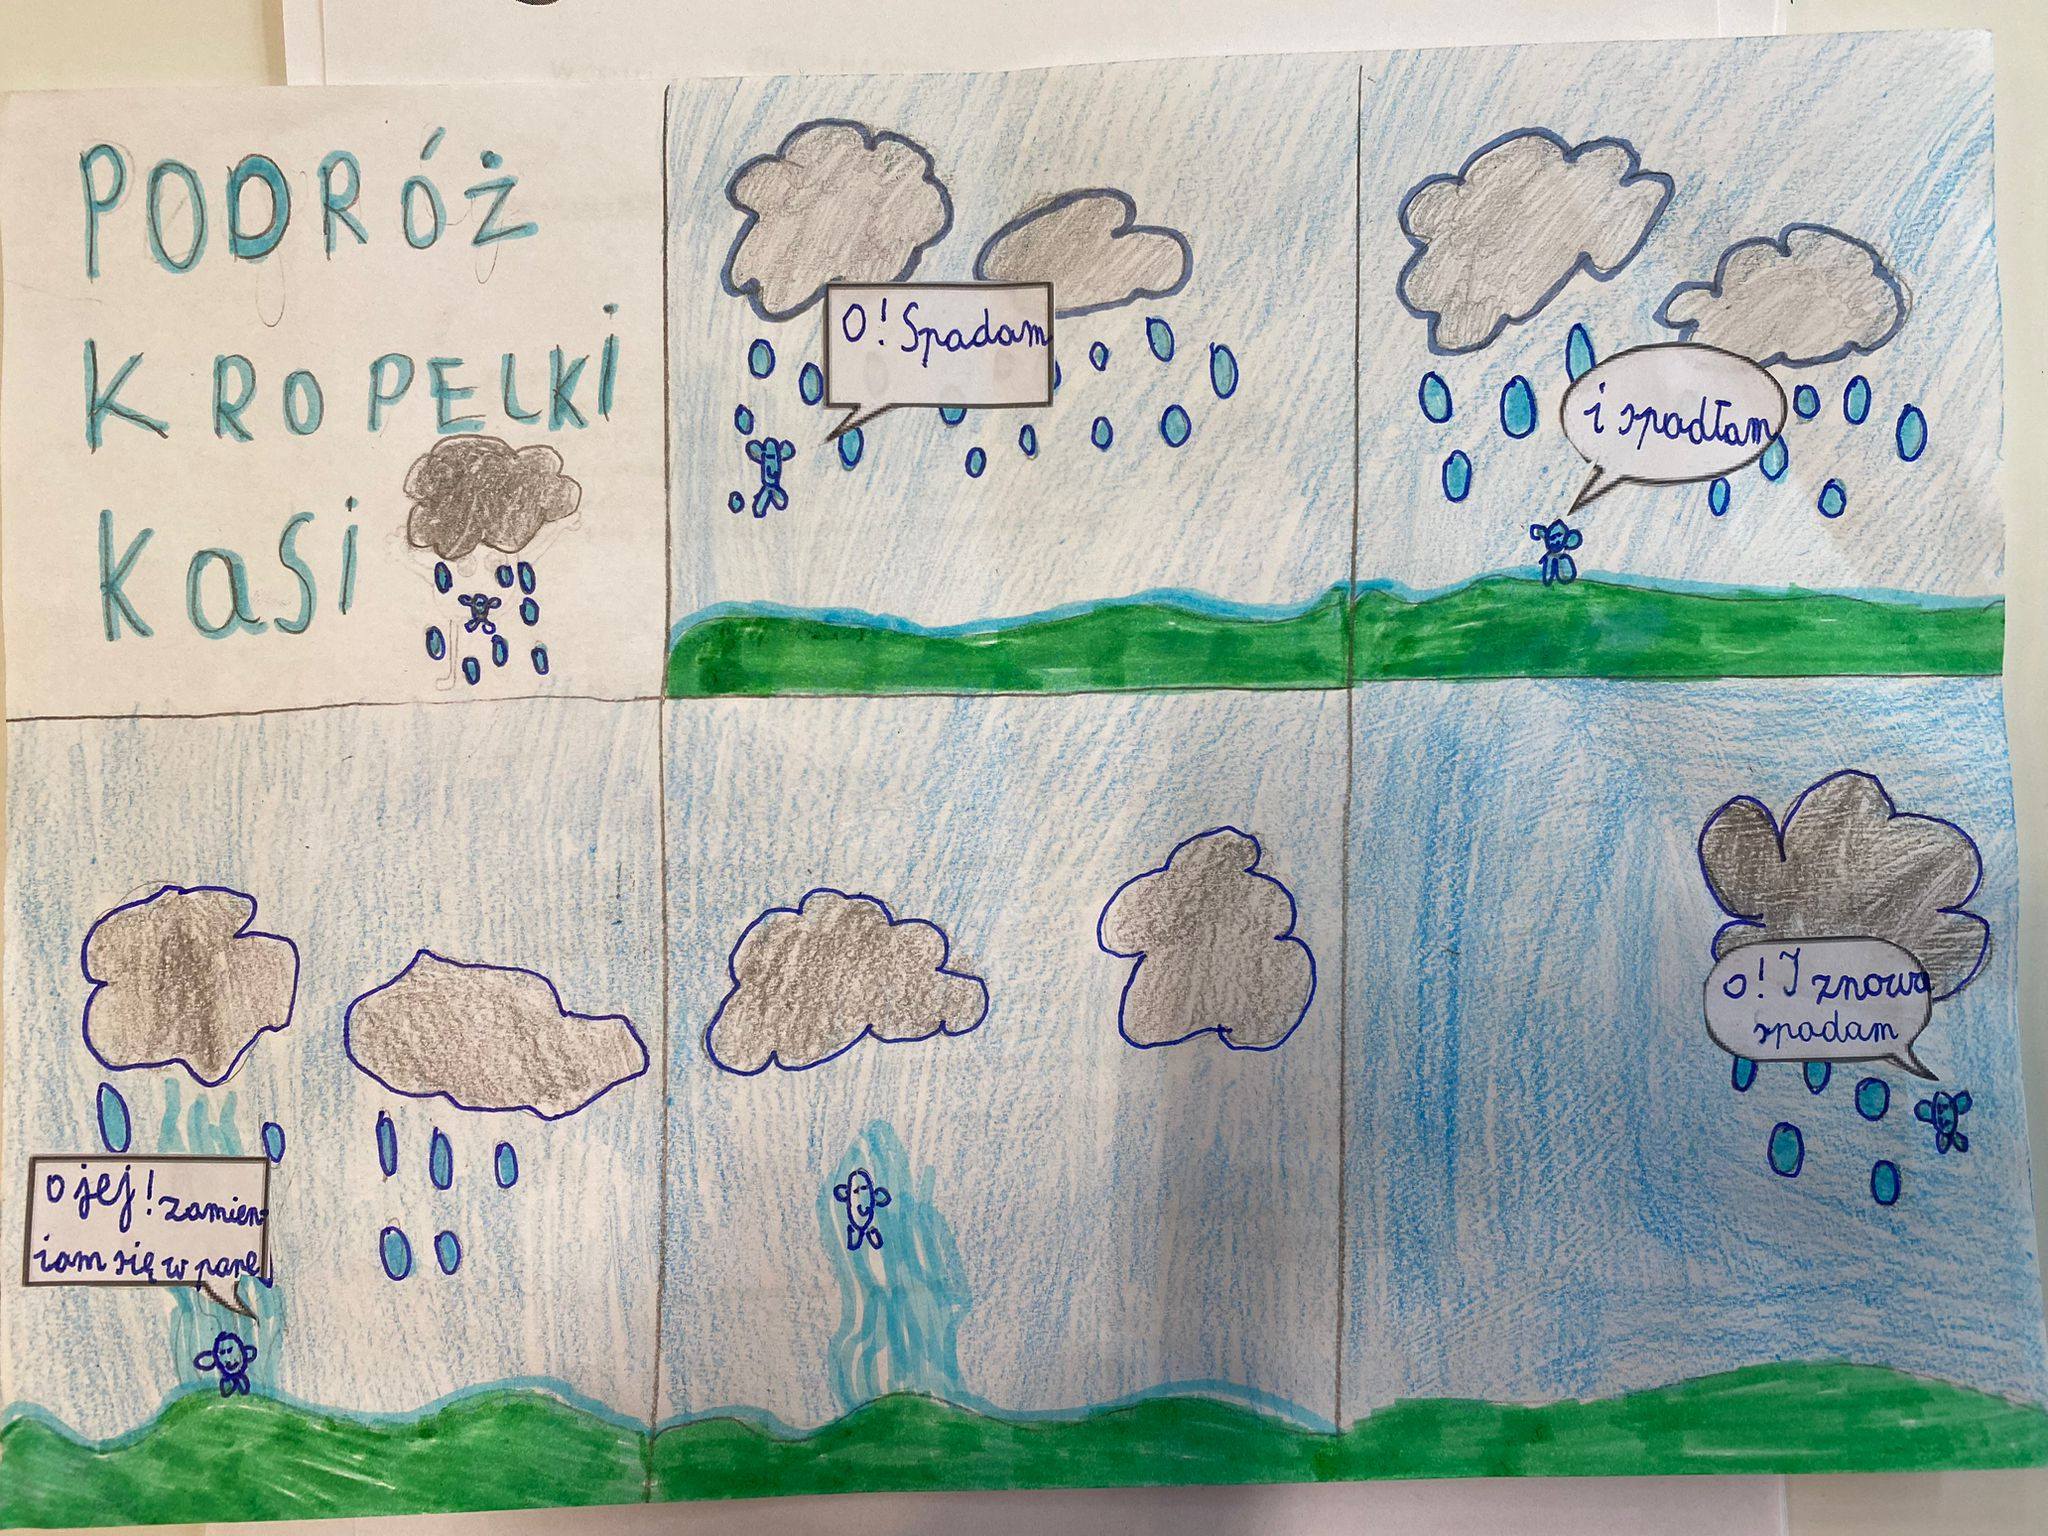 PODRÓŻ
KROPELKI
KaSi
O! Spadam
i spadłam
O jej! Zamien-
iam się w parę
O! I znowu
spadam